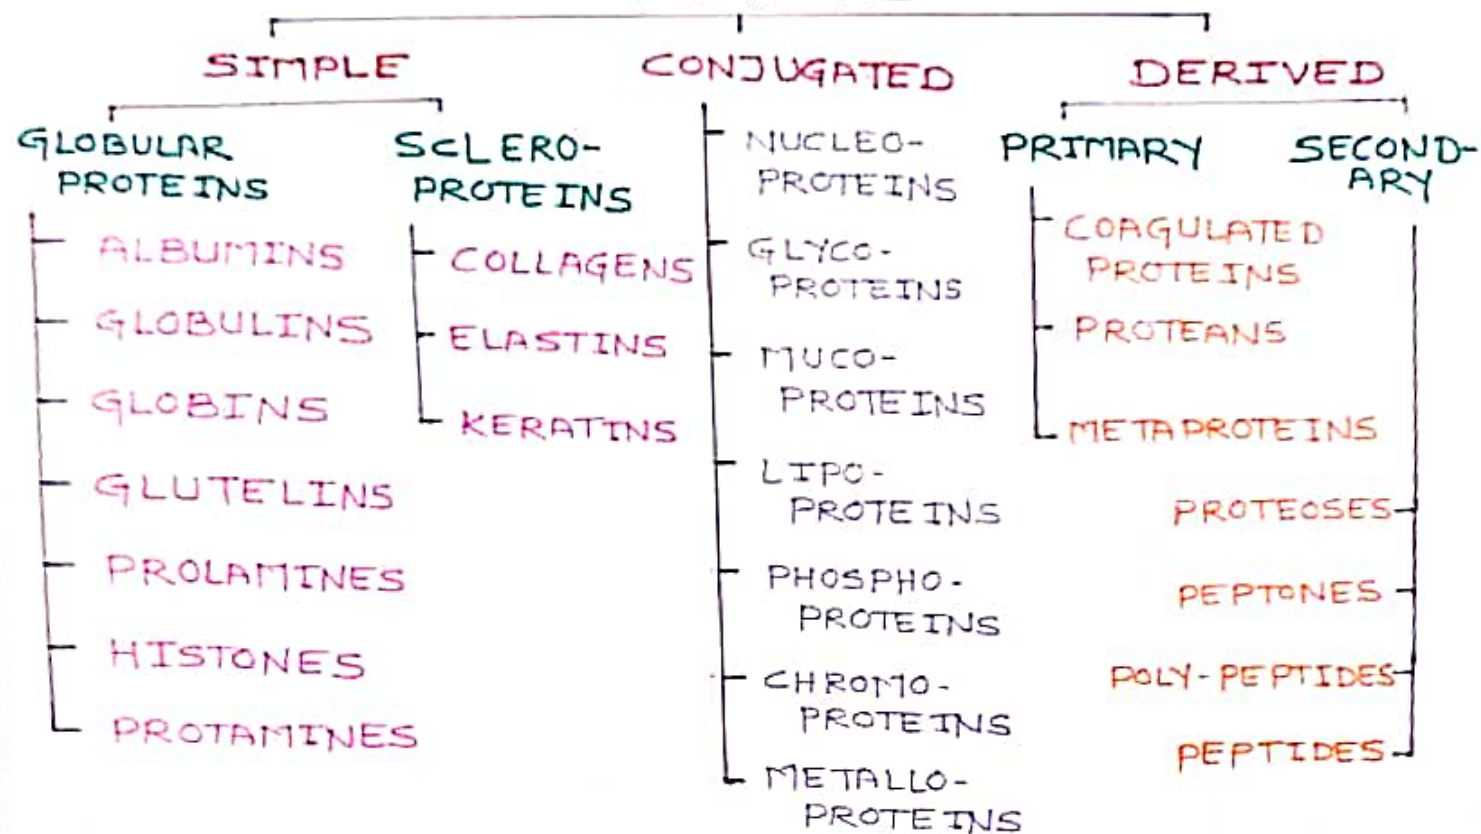 SIMPLE
CONJUGATED
DERIVED
GLOBULAR
PROTEINS
ALBUMINS
GLOBULINS
GLOBINS
GLUTELINS
PROLAMINES
HISTONES
PROTAMINES
ScLERO-
PROTEINS
COLLAGENS
ELASTINS
KERATINS
NUCLEO-
PROTEINS
GLYCO-
PROTEINS
MUCO-
PROTEINS
LIPO-
PROTEINS
PHOSPHO-
PROTEINS
CHROMO-
PROTEINS
METALLO-
PROTEINS
PRIMARY
COAGULATED
PROTEINS
PROTEANS
METAPROTEINS
SECOND-
ARY
PROTEOSES
PEPTONES
POLY-PEPTIDES
PEPTIDES